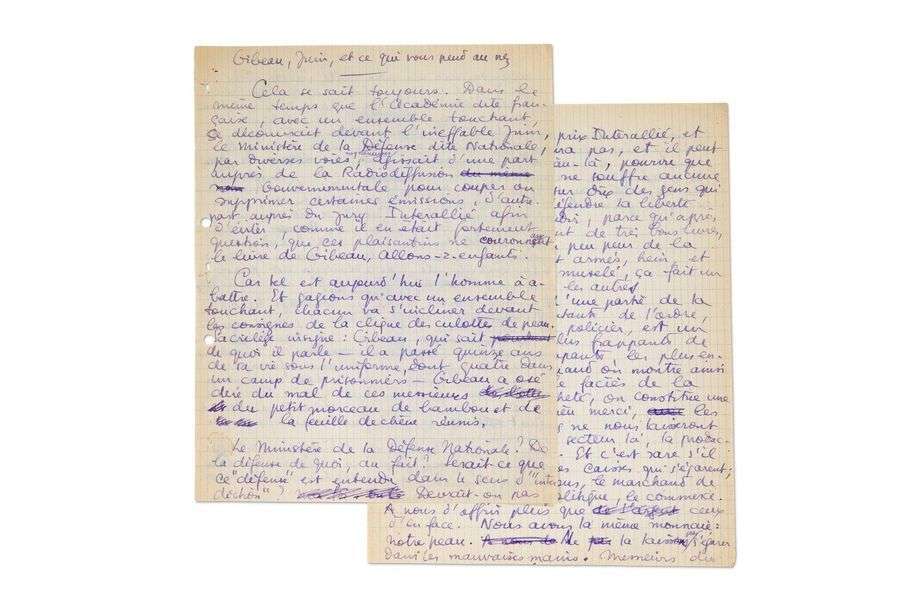 Gibeau, Juin, et ce qui vous pend au nez
Cela se sait toujours. Dans le
même temps que l'Académie dite fran-
çaise, avec un ensemble touchant,
se découvrait devant l'ineffable Juin,
le Ministère de la Défense dite Nationale,
par diverses voies, agissait d'une part
auprès de la Radiodiffusion du même
nom Gouvernementale pour couper ou
supprimer certaines émissions, d'autre
part auprès du Jury Interallié afin
d'éviter, comme il en était fortement
question, que ces plaisantins ne couronnent
le livre de Gibeau, Allons-z-enfants.
Car tel est aujourd'hui l'homme à a-
battre. Et gageons qu'avec un ensemble
touchant, chacun va s'incliner devant
les consignes de la clique des culottes de peau.
Sacrilège insigne : Gibeau, qui sait pourtant
de quoi il parle — il a passé quinze ans
de sa vie sous l'uniforme, dont quatre dans
un camp de prisonniers — Gibeau a osé
dire du mal de ces messieurs
du petit morceau de bambou et de
la feuille de chêne réunis.
Le Ministère de la Défense Nationale ? De
la défense de quoi, au fait ? Serait-ce que
ce "défense" est entendu dans le sens d'"
" ? Devrait-on pas
prix Interallié, et
ra pas, et il peut
là, pourvu que
ne souffre aucune
sur dix des gens qui
défendre la liberté
parce qu'après
de très bons livres,
peu peur de la
armés, hein et
muselé, ça fait un
les autres
l'une partie de la
de l'ordre,
policier, est un
plus frappants de
les plus en-
quand on montre ainsi
faciès de la
on constitue une
merci, les
ne nous laisseront
secteur là, la
. Et c'est rare s'il
caisses qui s'égarent,
le marchand de
politique, le commerce.
A nous d'offrir plus que de l'argent ceux
d'en face. Nous avons la même monnaie :
notre peau. A nous de Ne pas la laisser s'égarer
dans les mauvaises mains. Messieurs du